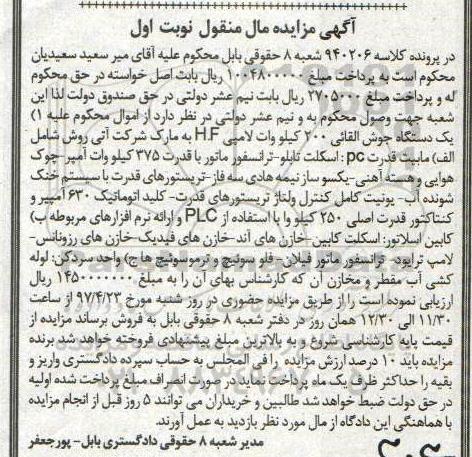 آگهی مزایده مال منقول نوبت اول
در پرونده کلاسه ۹۴۰۲۰۶ شعبه ۸ حقوقی بابل محکوم علیه آقای میر سعید سعیدیان
محکوم است به پرداخت مبلغ ۱۰۰۴۸۰۰۰۰۰ ریال بابت اصل خواسته در حق محکوم
له و پرداخت مبلغ ۲۷۰۵۰۰۰۰ ریال بابت نیم عشر دولتی در حق صندوق دولت لذا این
شعبه جهت وصول محکوم به و نیم عشر دولتی در نظر دارد از اموال محکوم علیه ۱)
یک دستگاه جوش القائی ۲۰۰ کیلو وات لامپی H.F به مارک شرکت آتی روش شامل
الف) مابیت قدرت pc : اسکلت تابلو-ترانسفور ماتور با قدرت ۳۷۵ کیلو وات آمپر-چوک
هوایی و هسته آهنی-یکسو ساز نیمه هادی سه فاز-تریستورهای قدرت با سیستم خنک
شونده آب- یونیت کامل کنترل ولتاژ تریستورهای قدرت- کلید اتوماتیک ۶۳۰ آمپیر و
کنتاکتور قدرت اصلی ۲۵۰ کیلو وا با استفاده از PLC و ارائه نرم افزارهای مربوطه ب)
کابین اسلاتور: اسکلت کابین-خازن های آند-خازن های فیدبک-خازن های رزونانس-
لامپ ترایود- ترانسفور ماتور فیلان- فلو سوئیچ و ترموسوئیچ ها ج) واحد سردکن: لوله
کشی آب مقطر و مخازن آن که کارشناس بهای آن را به مبلغ ۱۴۵۰۰۰۰۰۰۰ ریال
ارزیابی نموده است را از طریق مزایده حضوری در روز شنبه مورخ ۹۷/۴/۲۳ از ساعت
۱۱/۳۰ الی ۱۲/۳۰ همان روز در دفتر شعبه ۸ حقوقی بابل به فروش برساند مزایده از
قیمت پایه کارشناسی شروع و به بالاترین مبلغ پیشنهادی فروخته خواهد شد برنده
مزایده باید ۱۰ درصد ارزش مزایده را فی المجلس به حساب سپرده دادگستری واریز و
بقیه را حداکثر ظرف یک ماه پرداخت نماید در صورت انصراف مبلغ پرداخت شده اولیه
در حق دولت ضبط خواهد شد طالبین و خریداران می توانند ۵ روز قبل از انجام مزایده
با هماهنگی این دادگاه از مال مورد نظر بازدید به عمل آورند.
مدیر شعبه ۸ حقوقی دادگستری بابل- پورجعفر